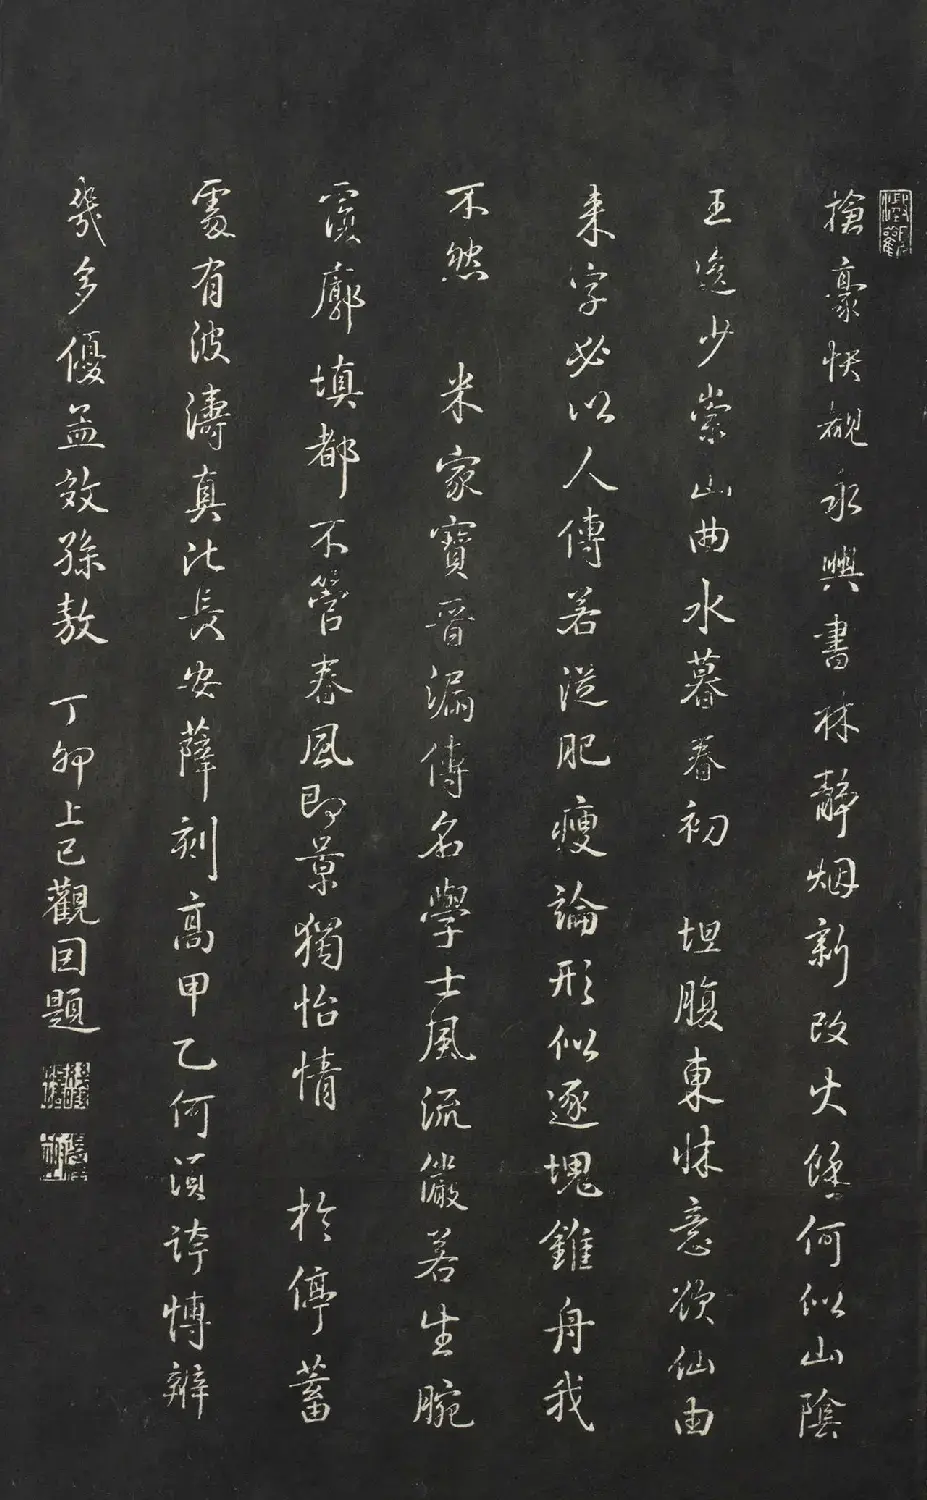 搶豪快覩永興書林靜烟新改火餘何似山陰
王逸少崇山曲水暮春初 坦腹東牀意欲仙由
来字必以人傳若從肥瘦論形似逐塊錐舟我
不然 米家寶晉漏傳名學士風流儼若生腕
廓填都不管春風即景獨怡情 於停蓄
處有波濤真比長安薛刻高甲乙何須誇博辯
幾多優孟效孫敖 丁卯上巳觀因題